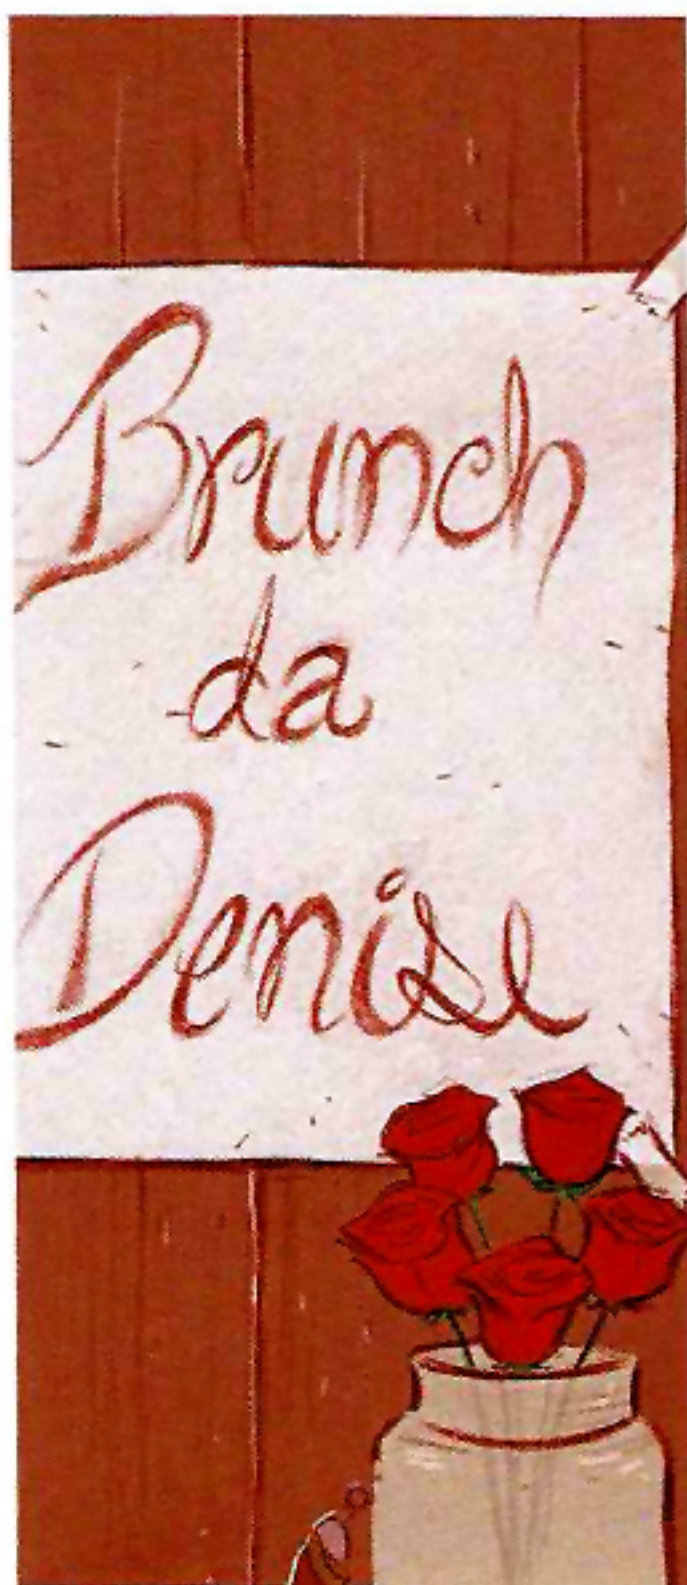 Brunch
da
Denise